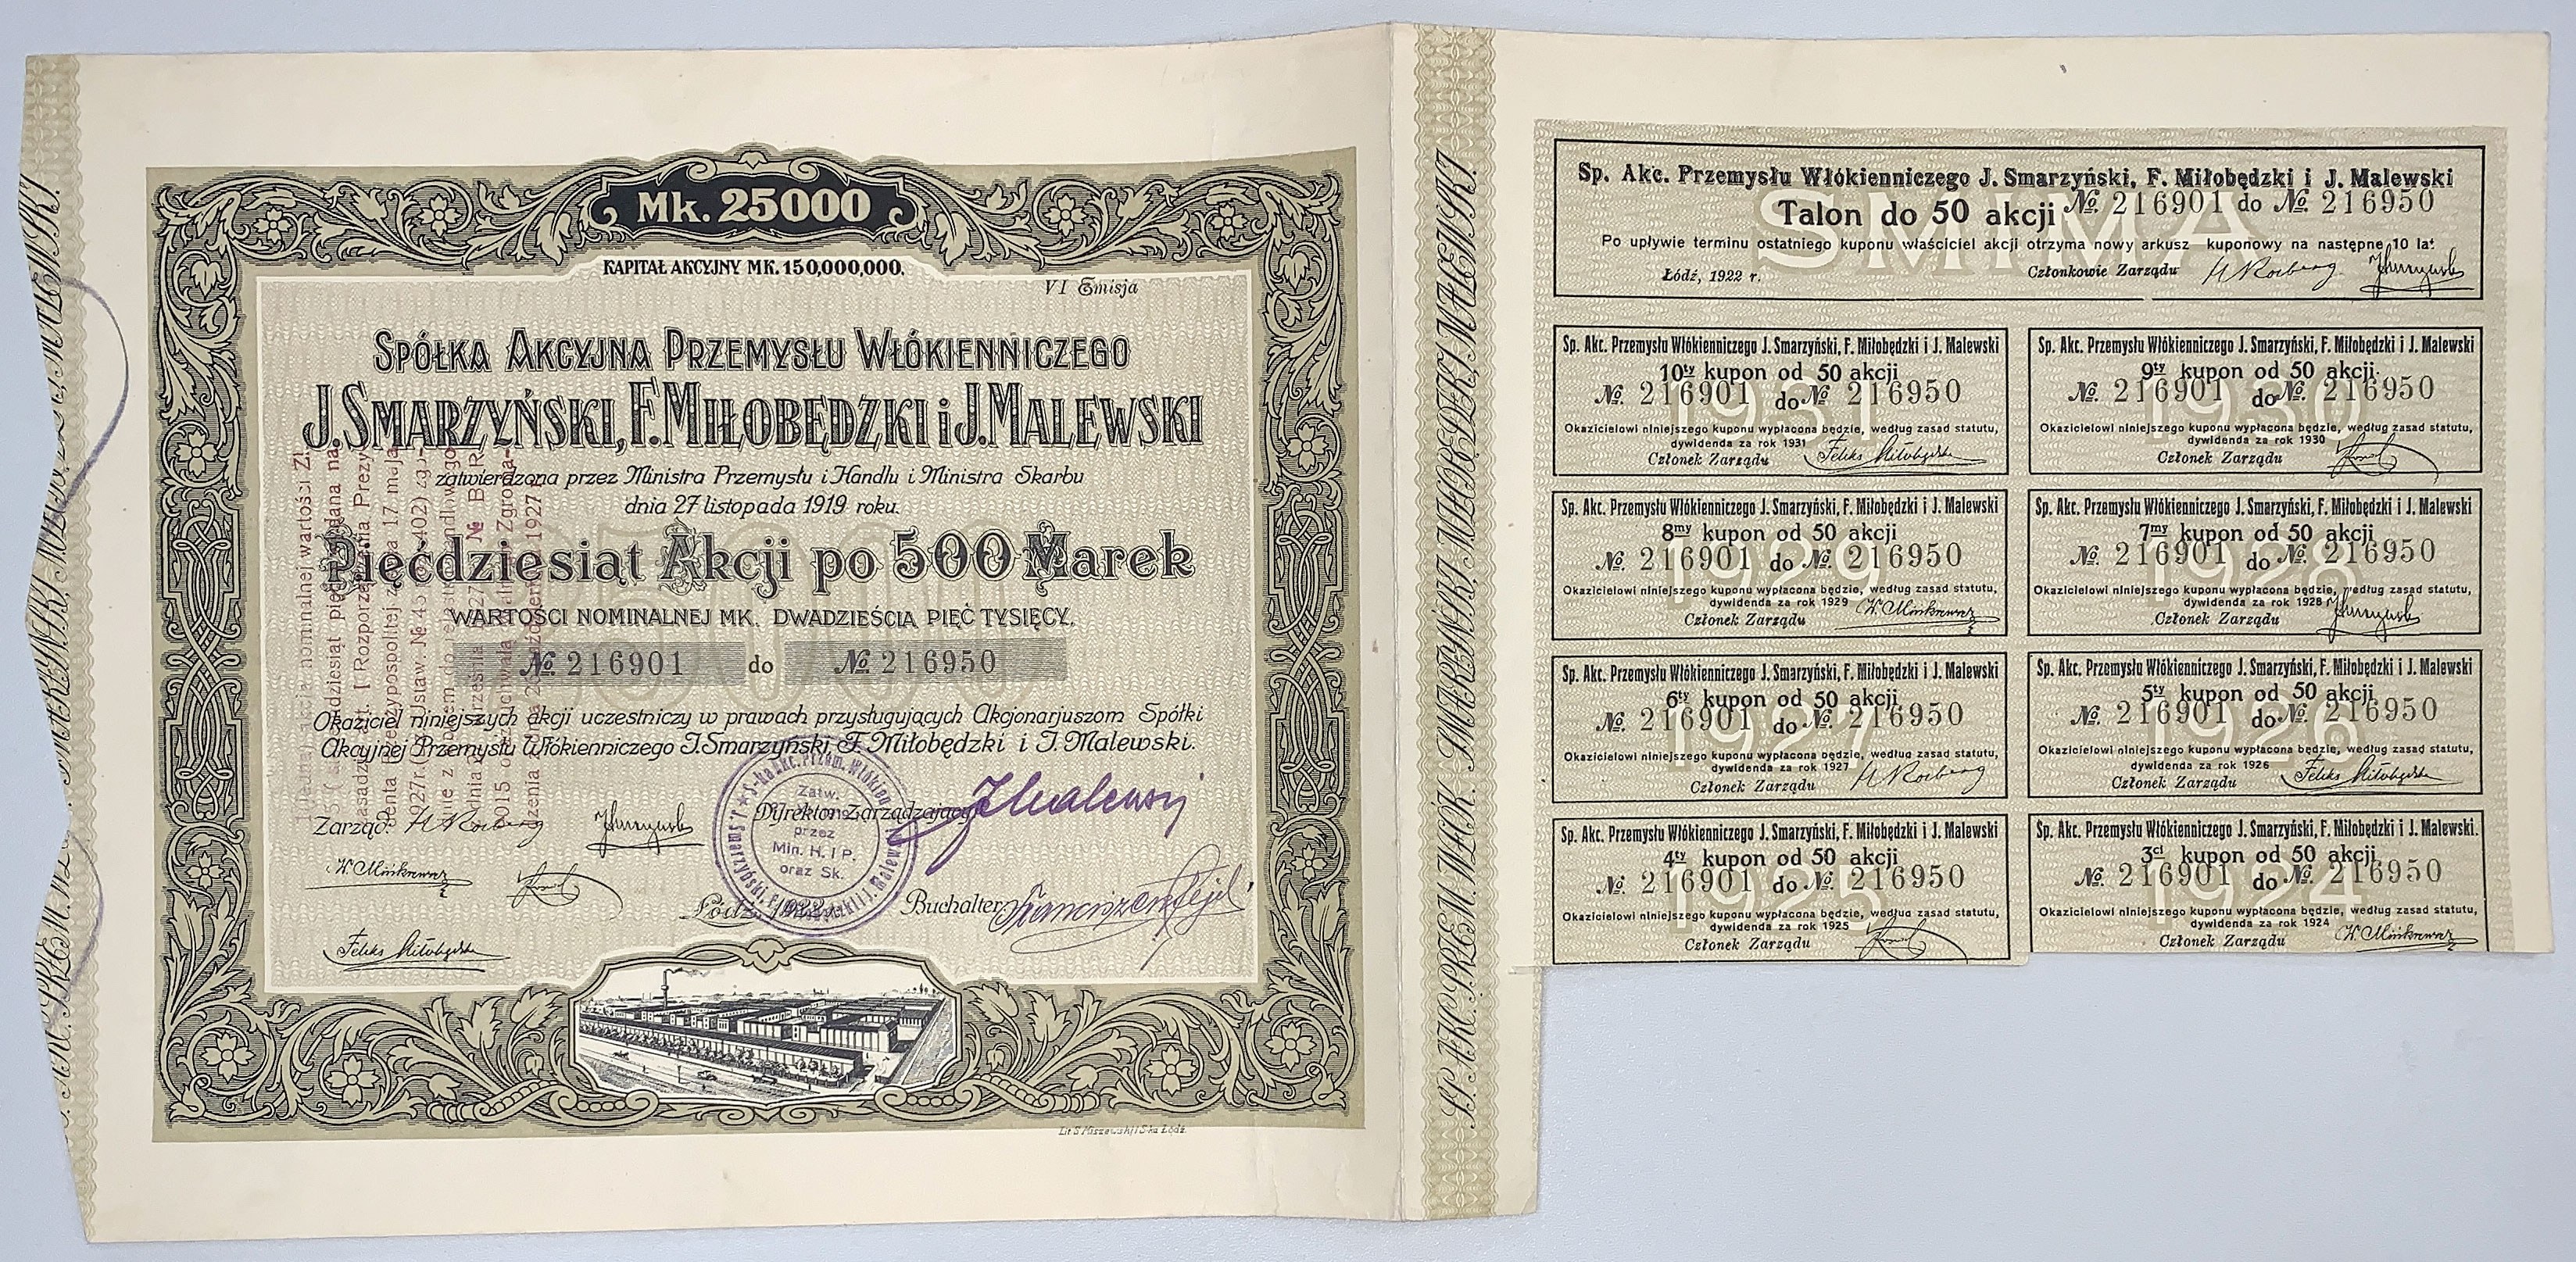 Mk. 25000
KAPITAŁ AKCYJNY MK. 150,000,000.
VI Emisja
SPÓŁKA AKCYJNA PRZEMYSŁU WŁÓKIENNICZEGO
J. SMARZYŃSKI, F. MIŁOBĘDZKI i J. MALEWSKI
zatwierdzona przez Ministra Przemysłu i Handlu i Ministra Skarbu
dnia 27 listopada 1919 roku.
Pięćdziesiąt Akcji po 500 Marek
WARTOŚCI NOMINALNEJ MK. DWADZIEŚCIA PIĘĆ TYSIĘCY.
№ 216901 do № 216950
Okaziciel niniejszych akcji uczestniczy w prawach przysługujących Akcjonarjuszom Spółki
Akcyjnej Przemysłu Włókienniczego J. Smarzyński, F. Miłobędzki i J. Malewski.
Zarząd:
Dyrektor Zarządzający
Zatw.
przez
Min. H. i P.
oraz Sk.
Łódź, 1922 r.
Buchalter
Feliks Miłobędzki
Lit. S. Miszewski i S-ka Łódź.
SP. AKC. PRZEM. WŁÓK. SMARZYŃSKI, MIŁOBĘDZKI, MALEWSKI.
Sp. Akc. Przemysłu Włókienniczego J. Smarzyński, F. Miłobędzki i J. Malewski
SMIMA
Talon do 50 akcji № 216901 do № 216950
Po upływie terminu ostatniego kuponu właściciel akcji otrzyma nowy arkusz kuponowy na następne 10 lat.
Łódź, 1922 r.
Członkowie Zarządu
Sp. Akc. Przemysłu Włókienniczego J. Smarzyński, F. Miłobędzki i J. Malewski
10ty kupon od 50 akcji
1931
№ 216901 do № 216950
Okazicielowi niniejszego kuponu wypłacona będzie, według zasad statutu,
dywidenda za rok 1931
Członek Zarządu Feliks Miłobędzki
Sp. Akc. Przemysłu Włókienniczego J. Smarzyński, F. Miłobędzki i J. Malewski
9ty kupon od 50 akcji.
1930
№ 216901 do № 216950
Okazicielowi niniejszego kuponu wypłacona będzie, według zasad statutu,
dywidenda za rok 1930
Członek Zarządu
Sp. Akc. Przemysłu Włókienniczego J. Smarzyński, F. Miłobędzki i J. Malewski
8my kupon od 50 akcji
1929
№ 216901 do № 216950
Okazicielowi niniejszego kuponu wypłacona będzie, według zasad statutu,
dywidenda za rok 1929
Członek Zarządu
Sp. Akc. Przemysłu Włókienniczego J. Smarzyński, F. Miłobędzki i J. Malewski
7my kupon od 50 akcji
1928
№ 216901 do № 216950
Okazicielowi niniejszego kuponu wypłacona będzie, według zasad statutu,
dywidenda za rok 1928
Członek Zarządu
Sp. Akc. Przemysłu Włókienniczego J. Smarzyński, F. Miłobędzki i J. Malewski
6ty kupon od 50 akcji
1927
№ 216901 do № 216950
Okazicielowi niniejszego kuponu wypłacona będzie, według zasad statutu,
dywidenda za rok 1927
Członek Zarządu
Sp. Akc. Przemysłu Włókienniczego J. Smarzyński, F. Miłobędzki i J. Malewski
5ty kupon od 50 akcji
1926
№ 216901 do № 216950
Okazicielowi niniejszego kuponu wypłacona będzie, według zasad statutu,
dywidenda za rok 1926
Członek Zarządu Feliks Miłobędzki
Sp. Akc. Przemysłu Włókienniczego J. Smarzyński, F. Miłobędzki i J. Malewski
4ty kupon od 50 akcji
1925
№ 216901 do № 216950
Okazicielowi niniejszego kuponu wypłacona będzie, według zasad statutu,
dywidenda za rok 1925
Członek Zarządu
Sp. Akc. Przemysłu Włókienniczego J. Smarzyński, F. Miłobędzki i J. Malewski.
3ci kupon od 50 akcji
1924
№ 216901 do № 216950
Okazicielowi niniejszego kuponu wypłacona będzie, według zasad statutu,
dywidenda za rok 1924
Członek Zarządu